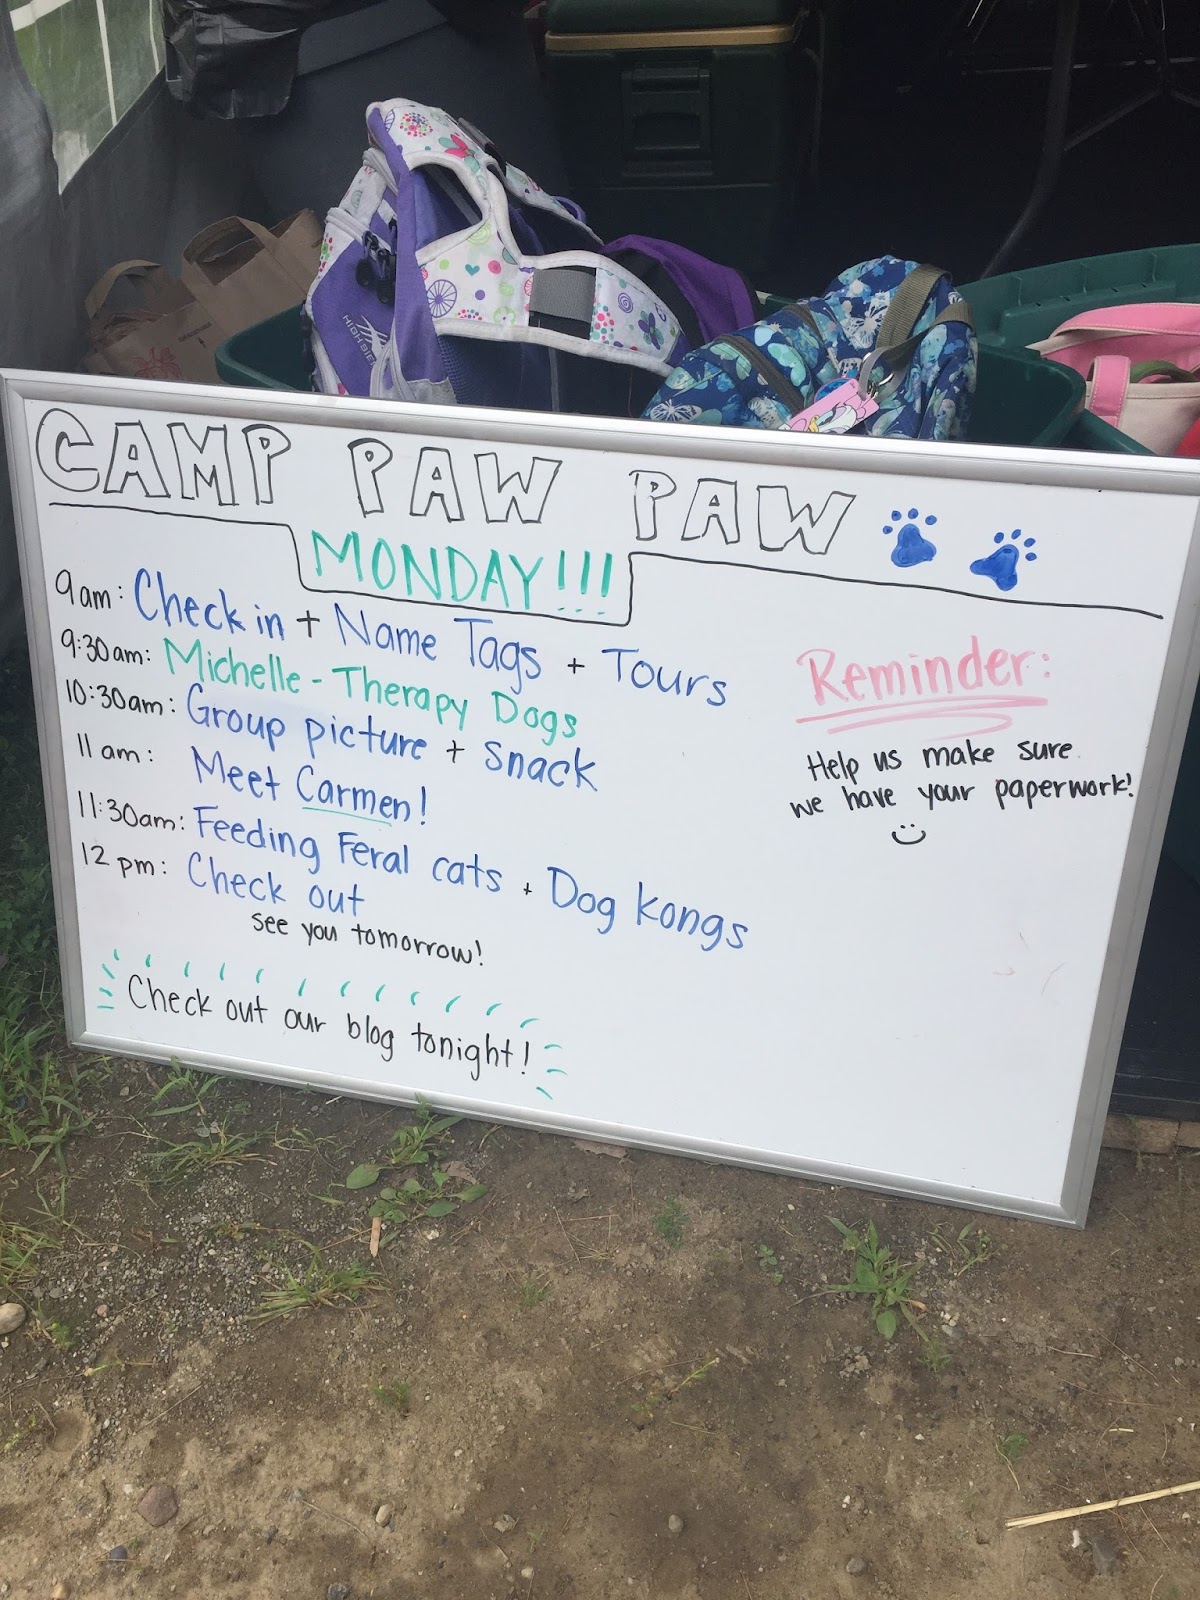 HIGH SIERRA
CAMP PAW PAW
MONDAY!!!
9am: Check in + Name Tags + Tours
9:30am: Michelle - Therapy Dogs
10:30am: Group picture + Snack
11am: Meet Carmen!
11:30am: Feeding Feral cats + Dog Kongs
12pm: Check out
see you tomorrow!
Check out our blog tonight!
Reminder:
Help us make sure
we have your paperwork!